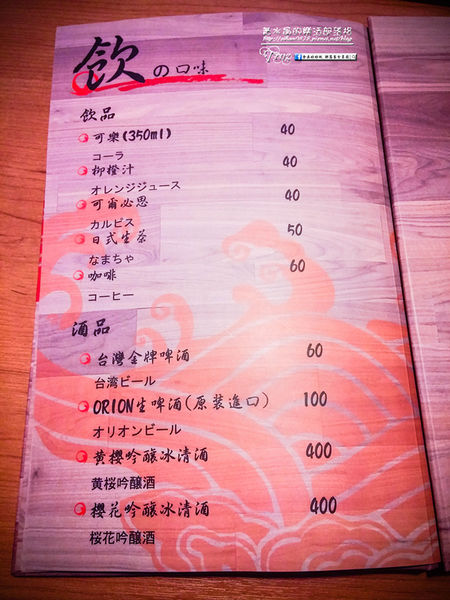 飲の口味
飲品
可樂(350ml) 40
コーラ
柳橙汁 40
オレンジジュース
可爾必思 40
カルピス
日式生茶 50
なまちゃ
咖啡 60
コーヒー
酒品
台灣金牌啤酒 60
台湾ビール
ORION生啤酒(原裝進口) 100
オリオンビール
黄櫻吟釀冰清酒 400
黄桜吟醸酒
櫻花吟釀冰清酒 400
桜花吟醸酒